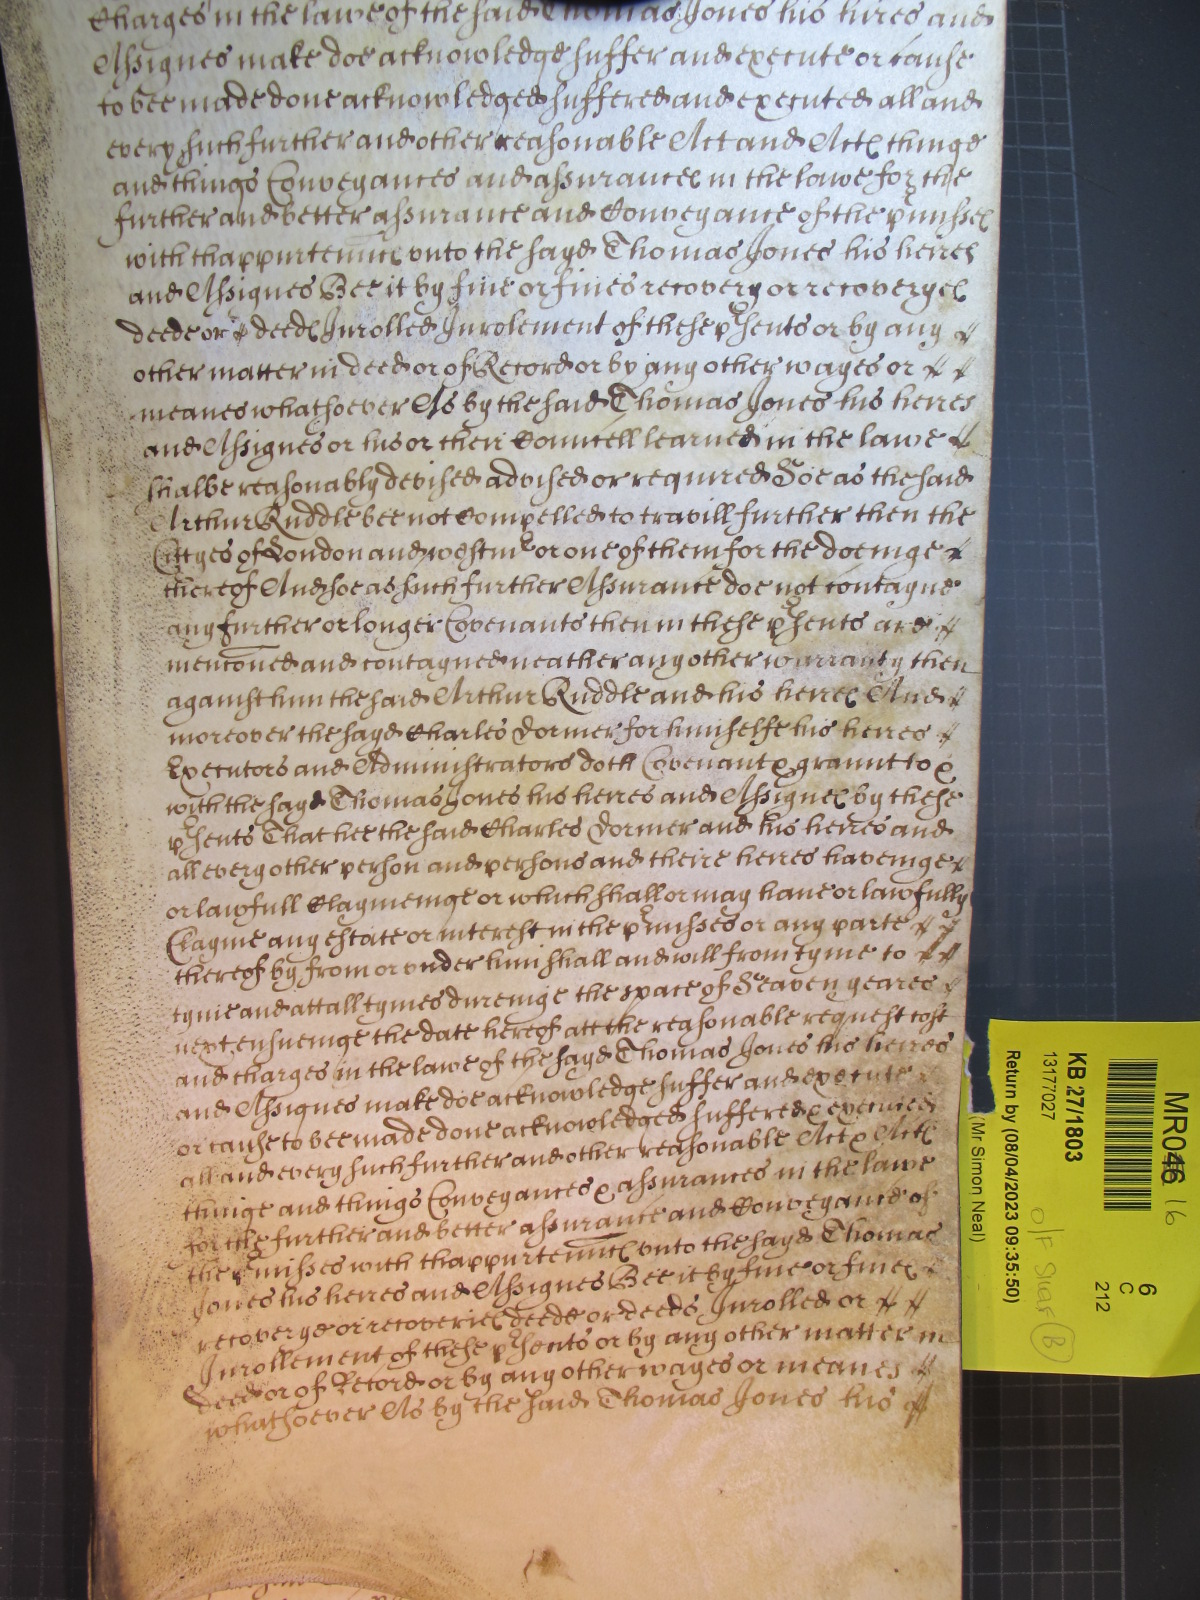 Charges in the lawe of the said Thomas Jones his heires and
Assignes make doe acknowledge suffer and execute or cause
to bee made done acknowledged suffered and executed all and
every such further and other reasonable Act and Actes thinge
and things Conveyances and assurances in the lawe for the
further and better assurance and Conveyance of the pmisses
with thappurtenncs vnto the sayd Thomas Jones his heires
and Assignes Bee it by fine or fines recovery or recoveryes
deede or deedes Inrolled Inrolement of these psents or by any
other matter in deed or of Record or by any other wayes or
meanes whatsoever As by the said Thomas Jones his heires
and Assignes or his or their Councell learned in the lawe
shalbe reasonably devised advised or required Soe as the said
Arthur Ruddle bee not Compelled to travill further then the
Cittyes of London and westmr or one of them for the doeinge
thereof And soe as such further Assurance doe not contayne
any further or longer Covenants then in these psents are
menconed and contayned neather any other warranty then
against him the said Arthur Ruddle and his heires And
moreover the sayd Charles Dormer for himselfe his heires
Executors and Administrators doth Covenant & graunt to &
with the sayd Thomas Jones his heires and Assignes by these
psents That hee the said Charles Dormer and his heires and
all every other person and persons and theire heires haveinge
or lawfull Claymeinge or which shall or may haue or lawfully
Clayme any estate or interest in the pmisses or any parte
thereof by from or vnder him shall and will from tyme to
tyme and att all tymes dureinge the space of Seaven yeares
next ensueinge the date hereof att the reasonable request cost
and charges in the lawe of the sayd Thomas Jones his heires
and Assignes make doe acknowledge suffer and execute
or cause to bee made done acknowledged suffered & executed
all and every such further and other reasonable Act & Actes
thinge and things Conveyances & assurances in the lawe
for the further and better assurance and Conveyance of
the pmisses with thappurtenncs vnto the sayd Thomas
Jones his heires and Assignes Bee it by fine or fines
recovery or recoveries deede or deeds Inrolled or
Inrollement of these psents or by any other matter in
deed or of Record or by any other wayes or meanes
whatsoever As by the said Thomas Jones his
MR046 16
6
C
212
KB 27/1803
13177027
Return by (08/04/2023 09:35:50)
(Mr Simon Neal)